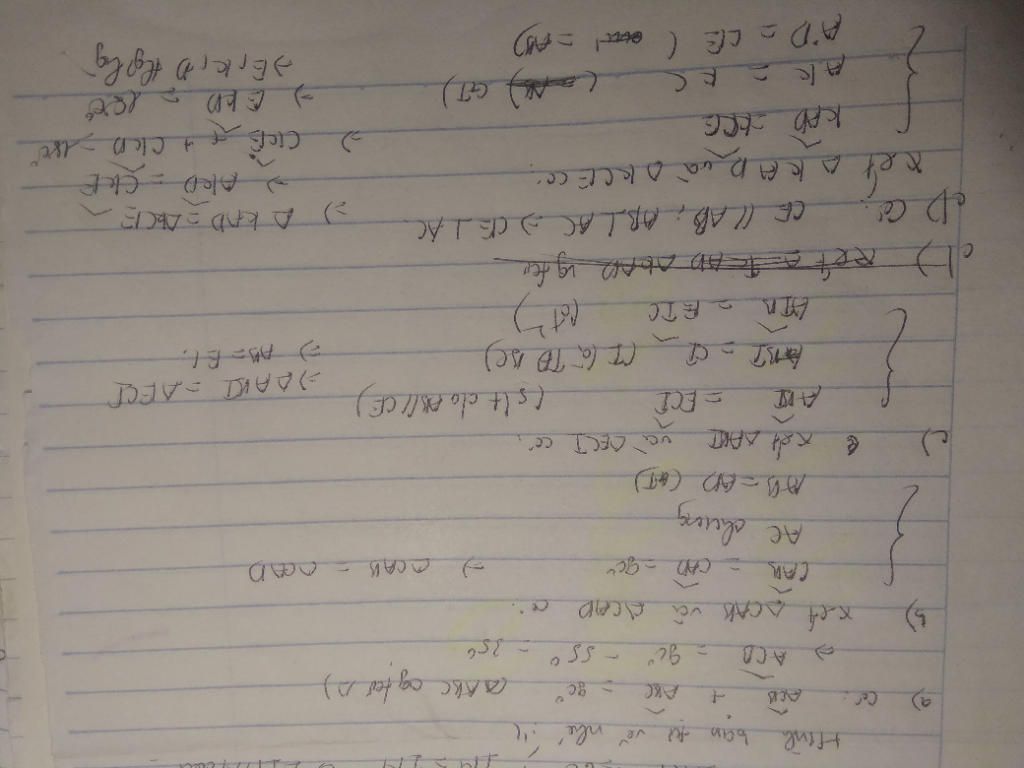 Hình bạn tự vẽ nhé !!
a) Có: ACB + ABC = 90° (△ABC vg tại A)
=> ACB = 90° - 55° = 35°
b) Xét △CAB và △CAD có:
CAB = CAD = 90°
AC chung
AB = AD (GT)
=> △CAB = △CAD
c) Xét △ABI và △ECI có:
ABI = ECI (slt do AB//CE)
BI = CI (I là TĐ BC)
AIB = EIC (đđ)
=> △ABI = △ECI
=> AB = EC.
d) Có: CE // AB; AB ⊥ AC => CE ⊥ AC.
Xét △KAD và △KCE có:
KAD = KCE
AK = KC (GT)
AD = CE ( = AB)
=> △KAD = △KCE
=> AKD = CKE
=> CKE + CKD = 180°
=> EKD = 180°
=> E, K, D thẳng hàng